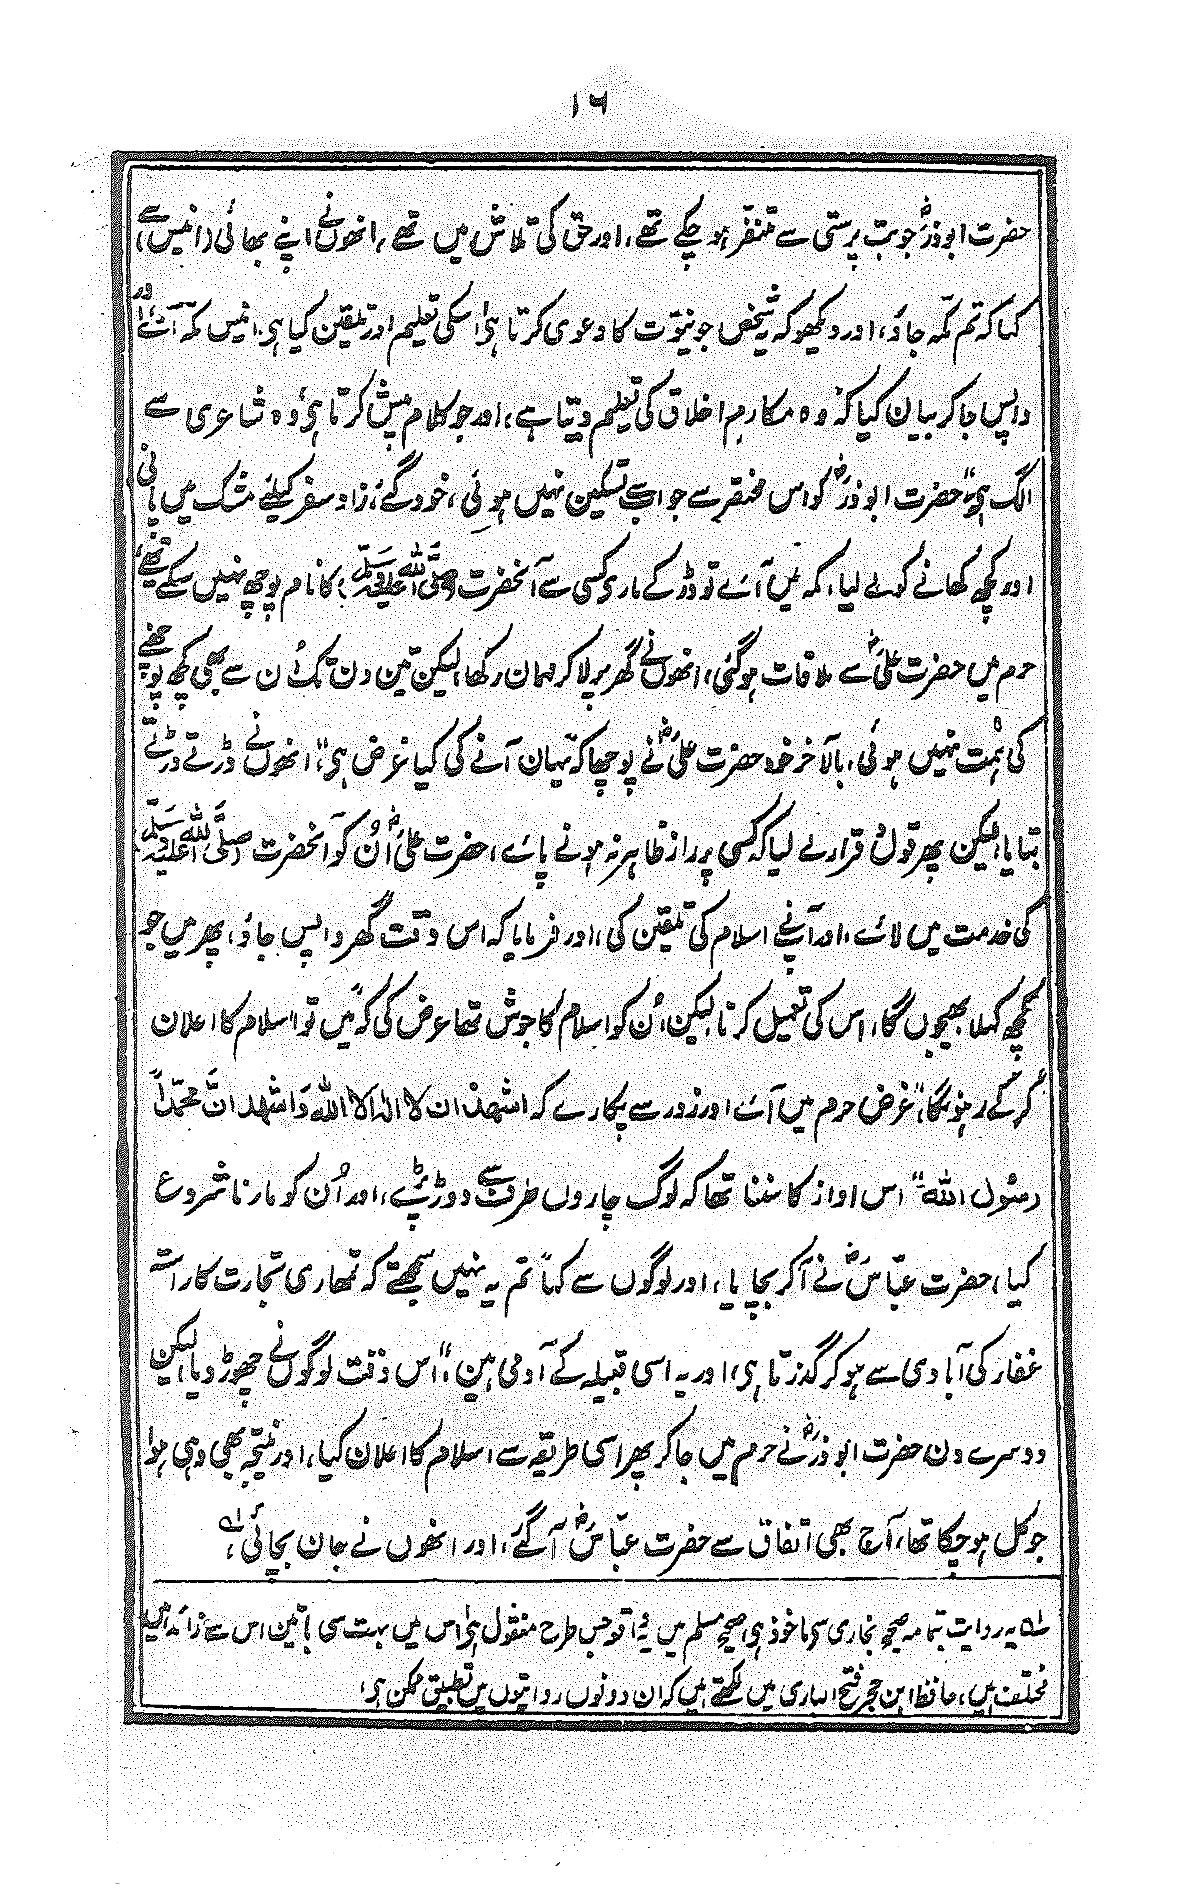 ۱۶
حضرت ابوذرؓ جو بت پرستی سے متنفر ہو چکے تھے، اور حق کی تلاش میں تھے، انھوں نے اپنے بھائی (انیس) سے
کہا کہ تم مکہ جاؤ، اور دیکھو کہ یہ شخص جو نبوّت کا دعوی کرتا ہی اسکی تعلیم اور تلقین کیا ہی، انیس مکہ آے اور
واپس جا کر بیان کیا کہ "وہ مکارم اخلاق کی تعلیم دیتا ہے، اور جو کلام پیش کرتا ہی وہ شاعری سے
الگ ہی" حضرت ابوذرؓ کو اس مختصر سے جواب سے تسکین نہیں ہوئی، خود گئے، زاد سفر کیلئے مشک میں پانی
اور کچھ کھانے کو لے لیا، مکہ میں آے تو ڈر کے مارے کسی سے آنحضرت (صلی اللہ علیہ وسلم) کا نام پوچھ نہیں سکتے تھے،
حرم میں حضرت علیؓ سے ملاقات ہو گئی، انھوں نے گھر پر لا کر مہمان رکھا، لیکن تین دن تک اُن سے بھی کچھ پوچھنے
کی ہمت نہیں ہوئی، بالآخر خود حضرت علیؓ نے پوچھا کہ "یہان آنے کی کیا غرض ہی"، انھوں نے ڈرتے ڈرتے
بتایا، لیکن پھر قول قرار لے لیا کہ کسی پر راز ظاہر نہ ہونے پاے، حضرت علیؓ اُن کو آنحضرت صلی اللہ علیہ وسلم
کی خدمت میں لاے، اور آپنے اسلام کی تلقین کی، اور فرمایا کہ اس وقت گھر واپس جاؤ، پھر میں جو
کچھ کہلا بھیجوں گا، اس کی تعمیل کرنا، لیکن اُن کو اسلام کا جوش تھا عرض کی کہ "میں تو اسلام کا اعلان
کر کے رہونگا" غرض حرم میں آے اور زور سے پکارے کہ اشھد ان لا الہ الا اللہ واشھد انّ محمّداً
رسول اللہ" اس آواز کا سننا تھا کہ لوگ چاروں طرف سے دوڑ پڑے، اور اُن کو مارنا شروع
کیا، حضرت عباسؓ نے آ کر بچایا، اور لوگوں سے کہا "تم یہ نہیں سمجھتے کہ تمھاری تجارت کا راستہ
غفار کی آبادی سے ہو کر گذرتا ہی، اور یہ اسی قبیلہ کے آدمی ہین"، اس وقت لوگوں نے چھوڑ دیا، لیکن
دوسرے دن، حضرت ابوذرؓ نے حرم میں جا کر پھر اسی طریقہ سے اسلام کا اعلان کیا، اور نتیجہ بھی وہی ہوا
جو کل ہو چکا تھا، آج بھی اتفاق سے حضرت عباسؓ آ گئے، اور انھوں نے جان بچائی،
لہ یہ روایت بتمامہ صحیح بخاری سے ماخوذ ہی، صحیح مسلم میں یہ واقعہ جس طرح منقول ہی اس میں بہت سی باتین اس سے زائد اور
مختلف ہیں، حافظ ابن حجر فتح الباری میں لکھتے ہیں کہ ان دونوں روایتوں میں تطبیق ممکن ہی،